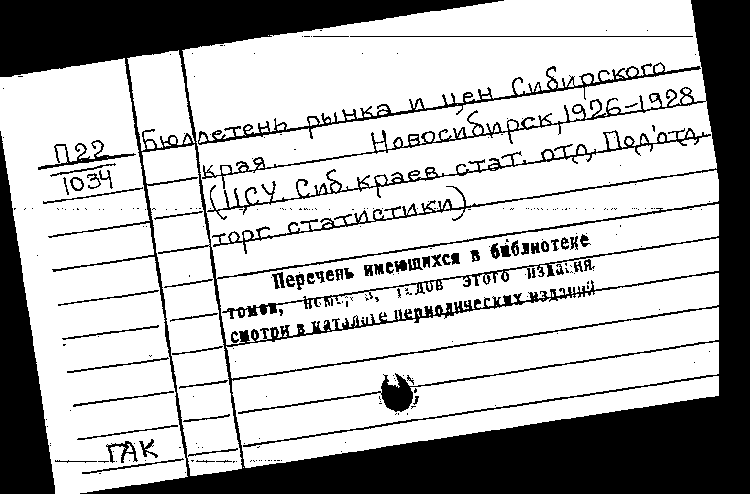 П22
1034
Бюллетень рынка и цен Сибирского
края. Новосибирск, 1926-1928
(ЦСУ. Сиб. краев. стат. отд. Под'отд.
торг. статистики).
Перечень имеющихся в библиотеке
томов, номеров, годов этого издания
смотри в каталоге периодических изданий
ГАК